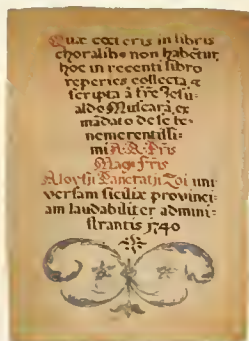 Quæ cœteris in libris
choralibꝰ non habētur,
hoc in recenti libro
reperies collecta &
scripta à frē Jesu-
aldo Muscarà ex
mādato de se be-
nemerentissi-
mi A. R. Pris
Mag: fris
Aloysij Pancratij Zoi uni
versam siciliæ provinci-
am laudabiliter admini-
strantis 1740